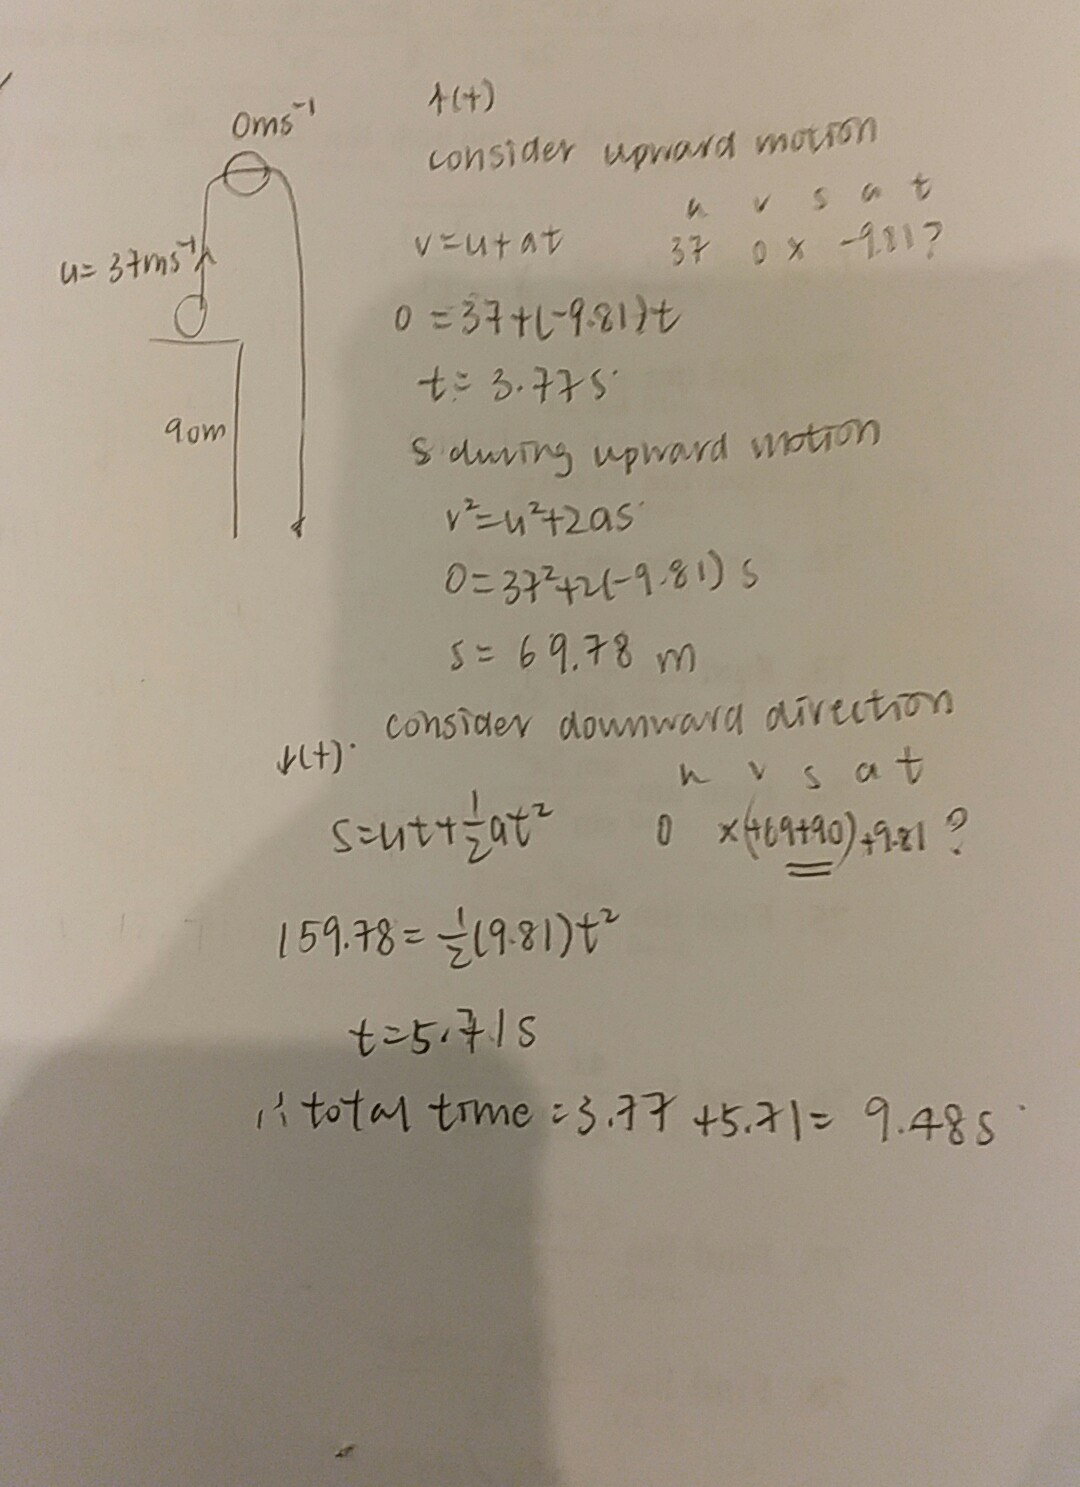 0ms⁻¹
u= 37ms⁻¹
90m
↑(+)
consider upward motion
u v s a t
v=u+at 37 0 x -9.81 ?
0 =37+(-9.81)t
t= 3.77s.
s during upward motion
v²=u²+2as
0=37²+2(-9.81) s
s= 69.78 m
consider downward direction
↓(+).
u v s a t
s=ut+½at² 0 x(+69+90)+9.81 ?
159.78= ½(9.81)t²
t=5.71s
∴ total time =3.77 +5.71= 9.48s